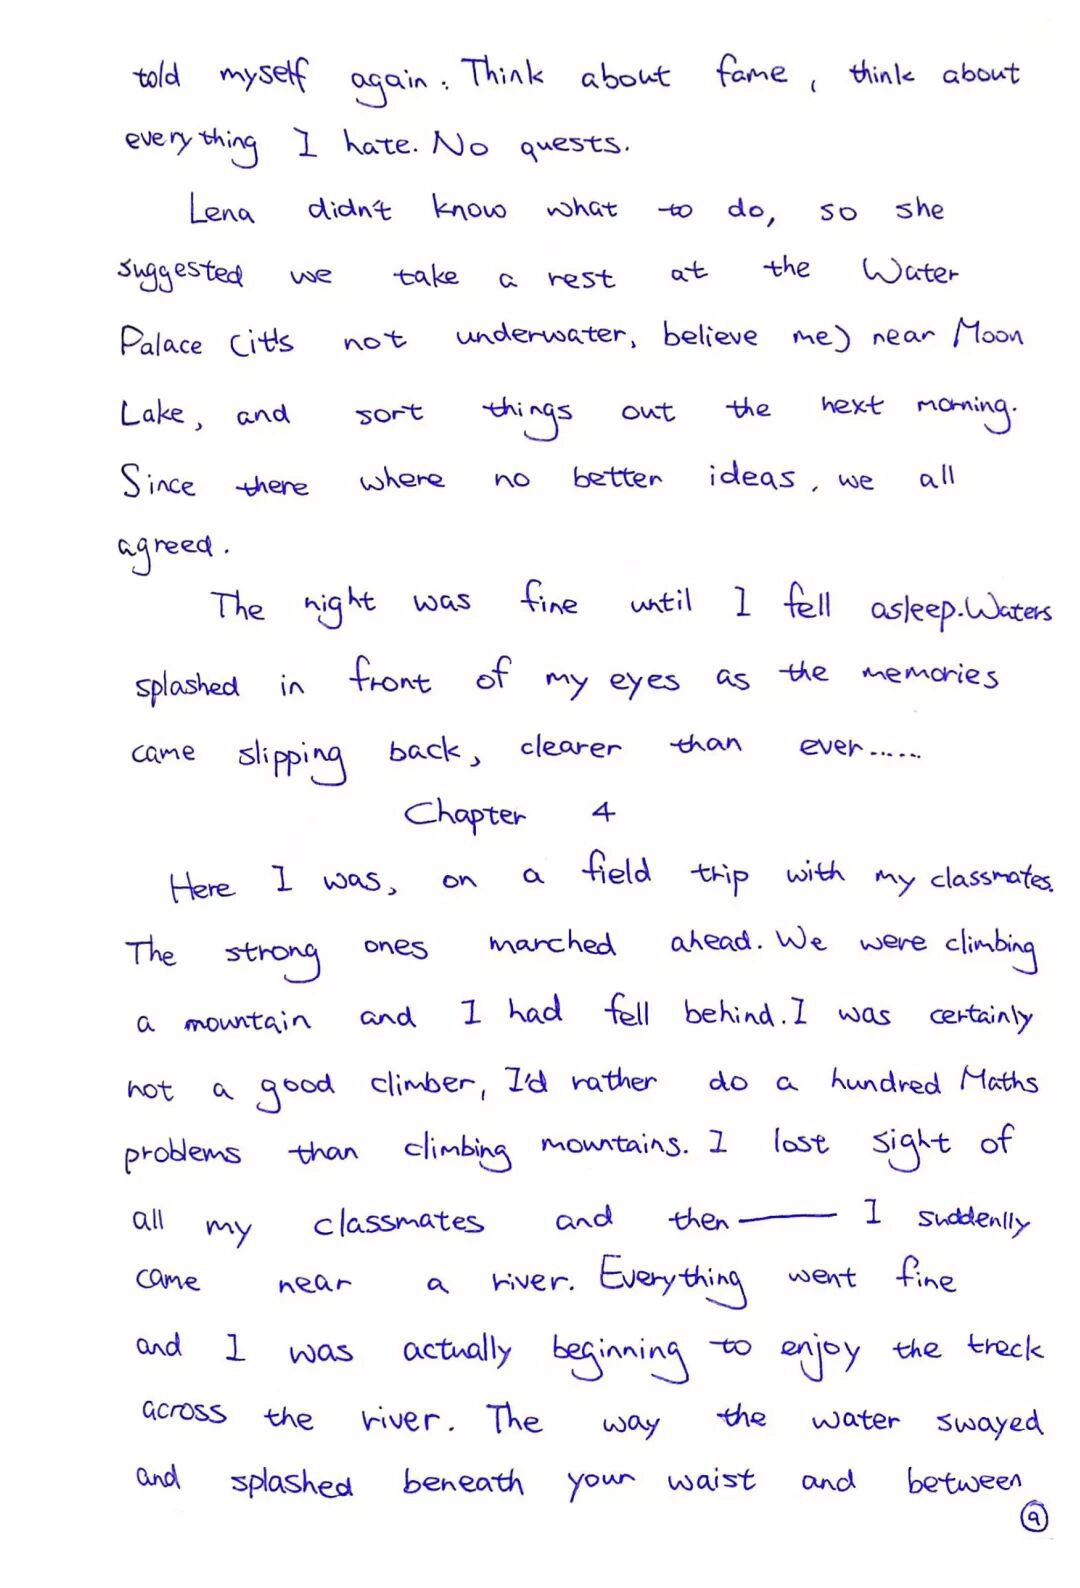 told myself again. Think about fame, think about
everything I hate. No quests.
Lena didn't know what to do, so she
suggested we take a rest at the Water
Palace (it's not underwater, believe me) near Moon
Lake, and sort things out the next morning.
Since there where no better ideas, we all
agreed.
The night was fine until I fell asleep. Waters
splashed in front of my eyes as the memories
came slipping back, clearer than ever......
Chapter 4
Here I was, on a field trip with my classmates.
The strong ones marched ahead. We were climbing
a mountain and I had fell behind. I was certainly
not a good climber, I'd rather do a hundred Maths
problems than climbing mountains. I lost sight of
all my classmates and then —— I suddenlly
came near a river. Everything went fine
and I was actually beginning to enjoy the treck
across the river. The way the water swayed
and splashed beneath your waist and between
9